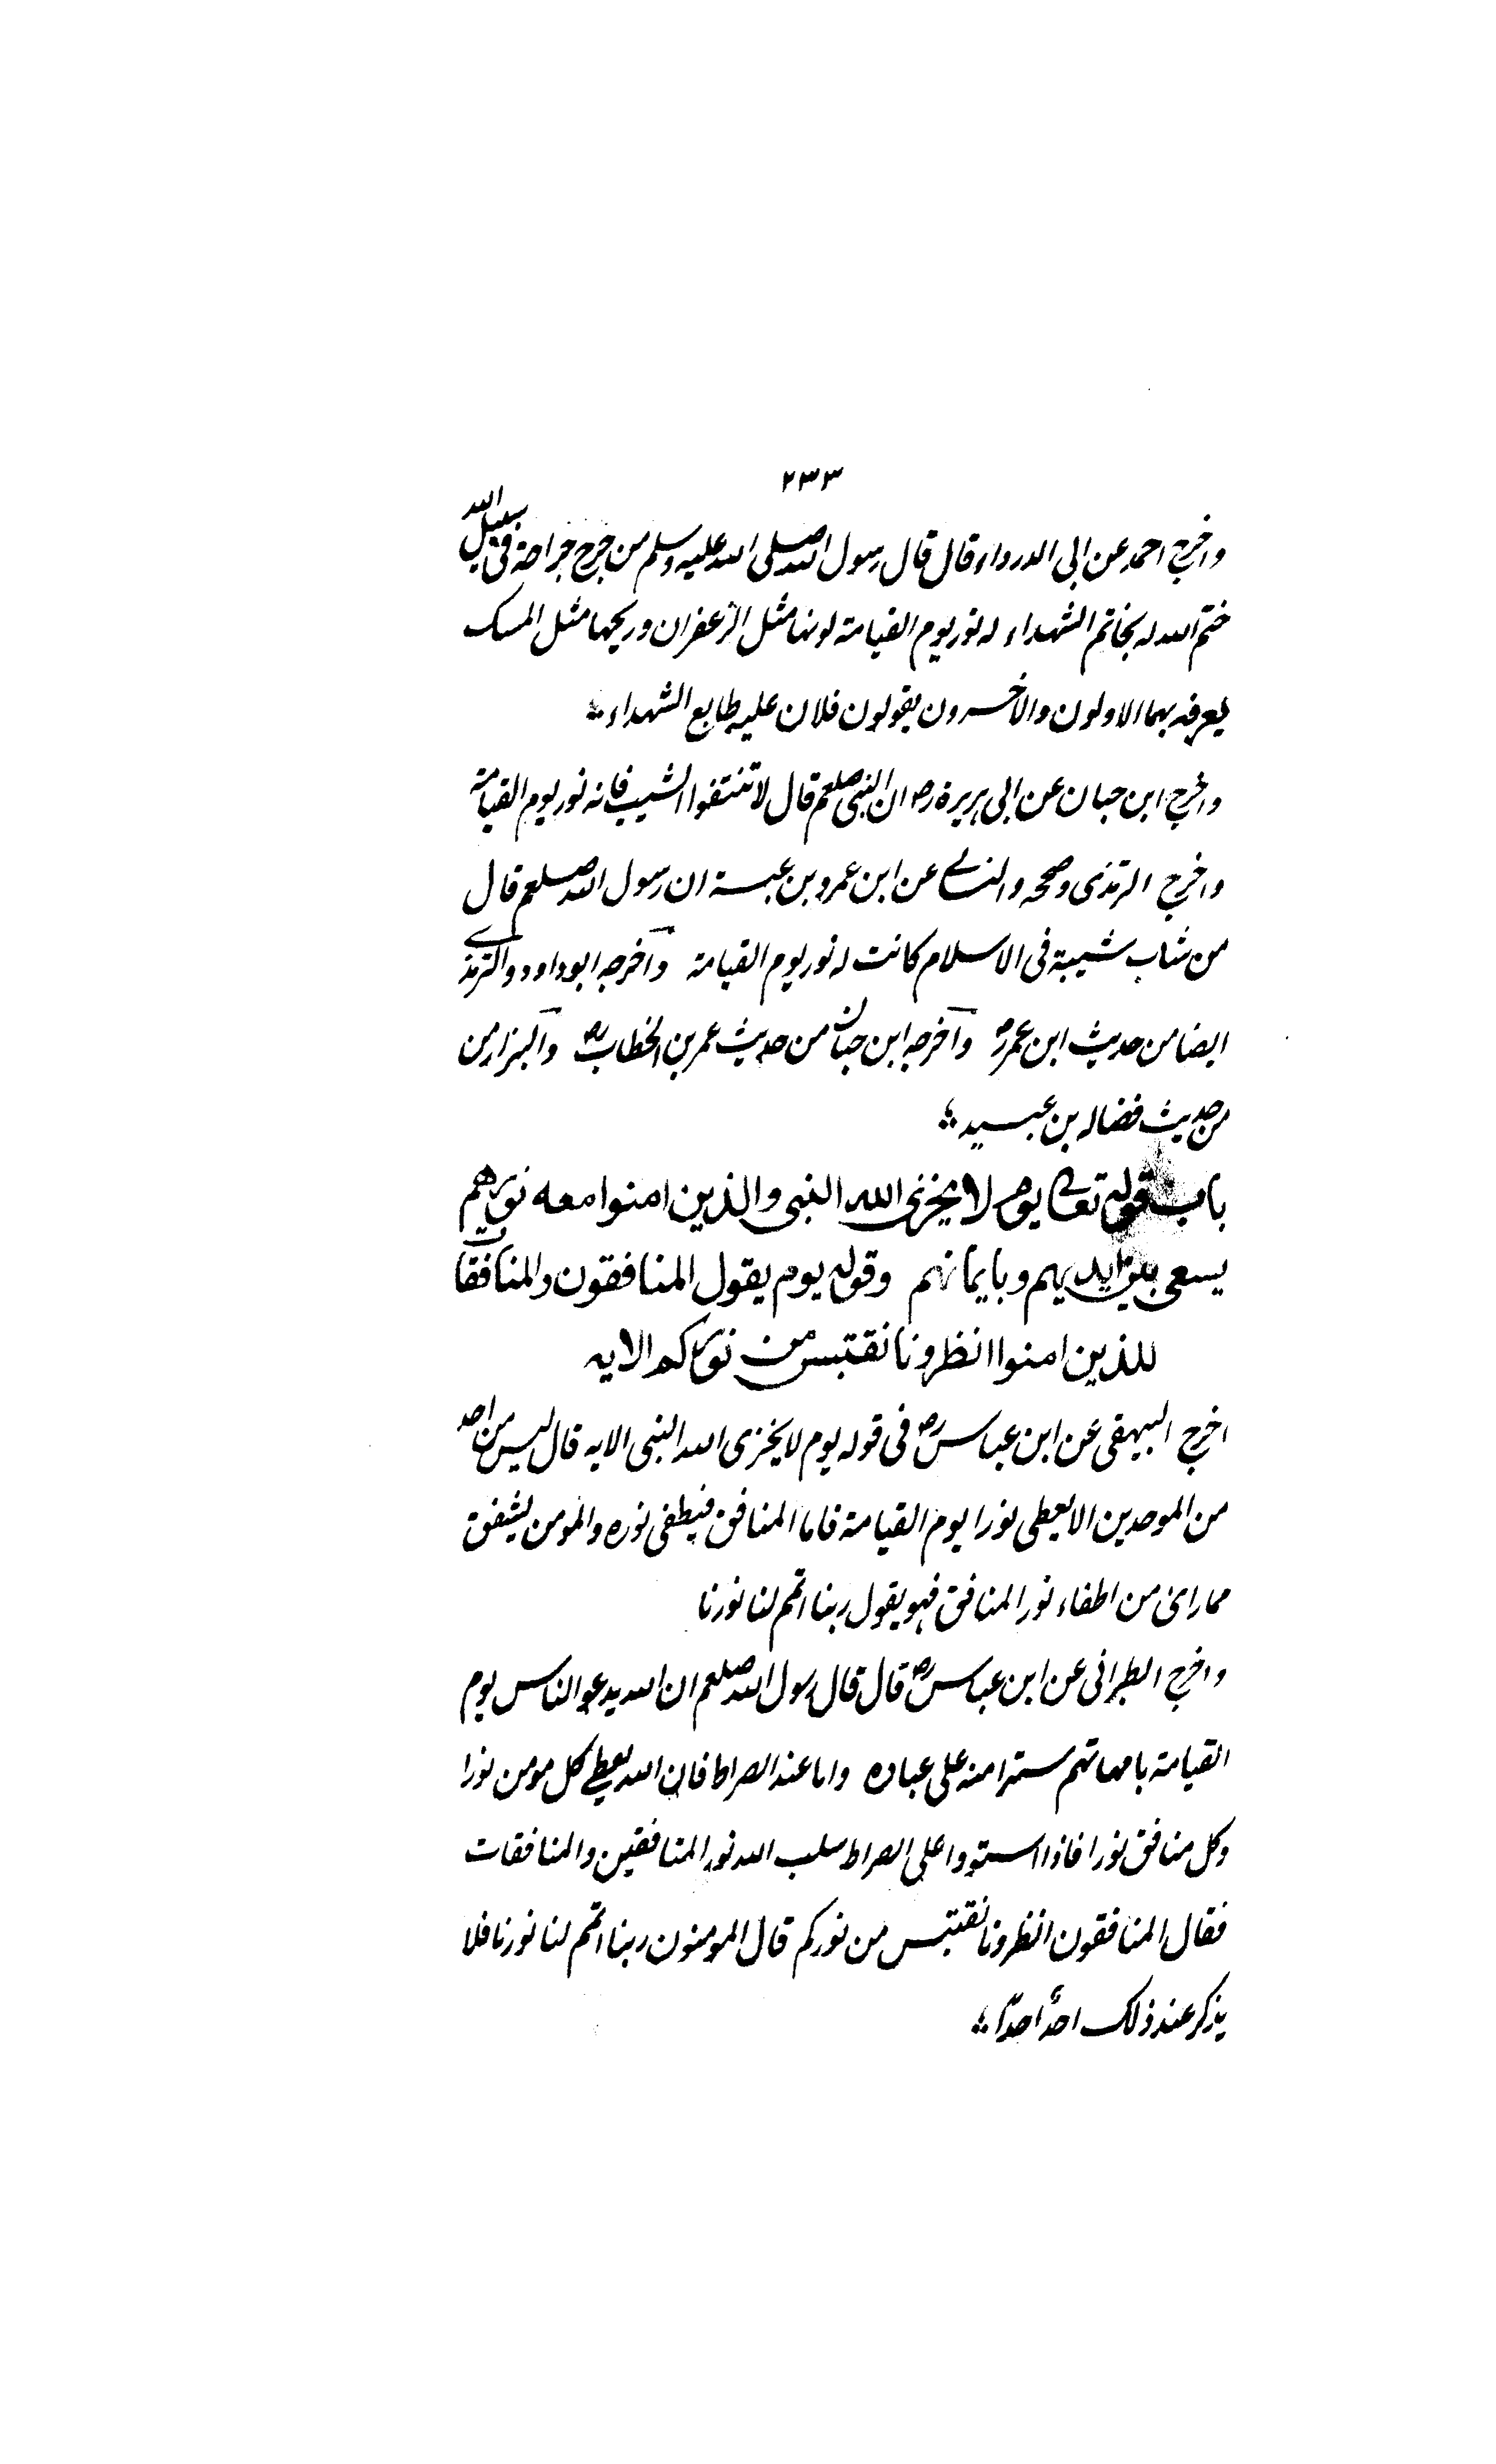 ٢٣٣
واخرج احمد عن ابی الدرداء قال قال رسول الله صلی الله علیه وسلم من جرح جراحة فی سبیل الله
ختم الله له بخاتم الشهداء له نور یوم القیامة لونها مثل الزعفران وریحها مثل المسک
یعرفه بها الاولون والآخرون یقولون فلان علیه طابع الشهداء
واخرج ابن حبان عن ابی هریرة رض ان النبی صلعم قال لا تنتفوا الشیب فانه نور یوم القیامة
واخرج الترمذی وصححه والنسائی عن ابن عمرو بن عبسة ان رسول الله صلعم قال
من شاب شیبة فی الاسلام کانت له نور یوم القیامة واخرجه ابوداود والترمذی
ایضا من حدیث ابن عمر رض واخرجه ابن حبان من حدیث عمر بن الخطاب رض والبزار من
من حدیث فضاله بن عبید
باب قوله تعالی یوم لا یخزی الله النبی والذین امنوا معه نورهم
یسعی بین ایدیهم وبایمانهم وقوله یوم یقول المنافقون والمنافقات
للذین امنوا انظرونا نقتبس من نورکم الایه
اخرج البیهقی عن ابن عباس رض فی قوله یوم لا یخزی الله النبی الایه قال لیس من احد
من الموحدین الا یعطی نورا یوم القیامة فاما المنافق فیطفی نوره والمومن یشفق
مما رای من اطفاء نور المنافق فهو یقول ربنا اتمم لنا نورنا
واخرج الطبرانی عن ابن عباس رض قال قال رسول الله صلعم ان الله یدعو الناس یوم
القیامة بامهاتهم سترا منه علی عباده واما عند الصراط فان الله یعطی کل مومن نورا
وکل منافق نورا فاذا استووا علی الصراط سلب الله نور المنافقین والمنافقات
فقال المنافقون انظرونا نقتبس من نورکم قال المومنون ربنا اتمم لنا نورنا فلا
یذکر عند ذلک احدٌ احدًا